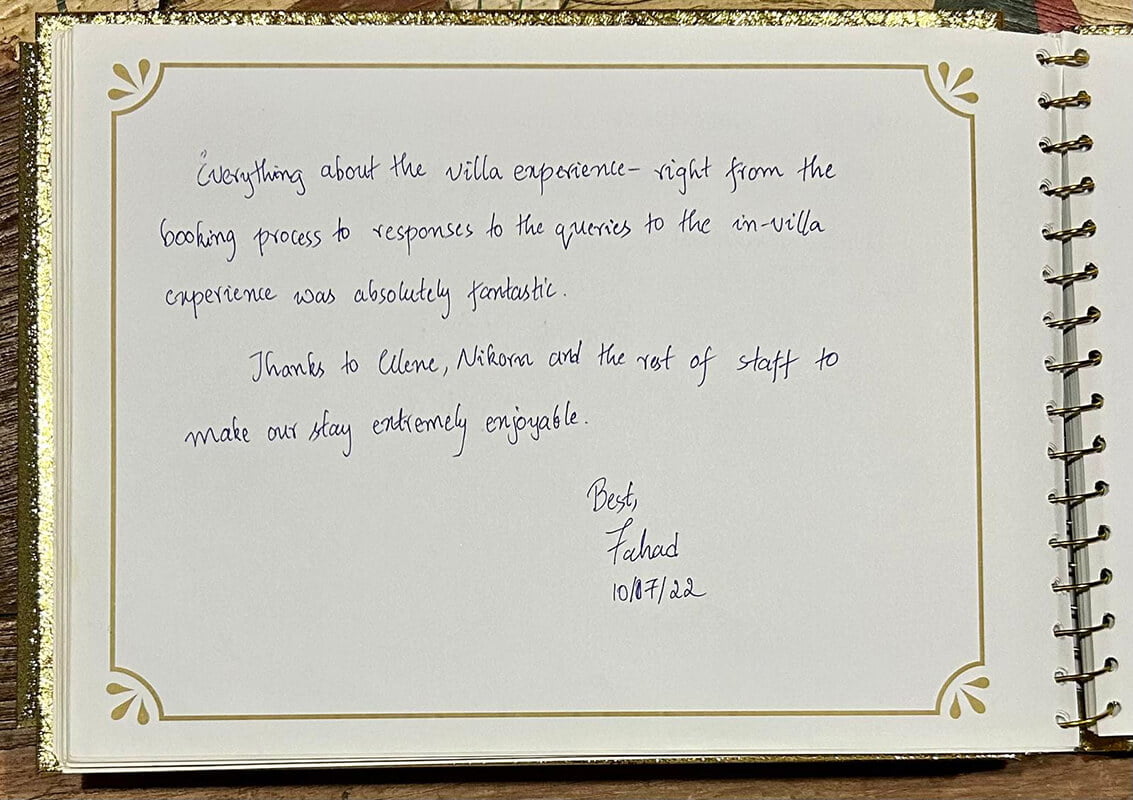 Everything about the villa experience- right from the
booking process to responses to the queries to the in-villa
experience was absolutely fantastic.
Thanks to Elene, Nikorn and the rest of staff to
make our stay extremely enjoyable.
Best,
Fahad
10/07/22